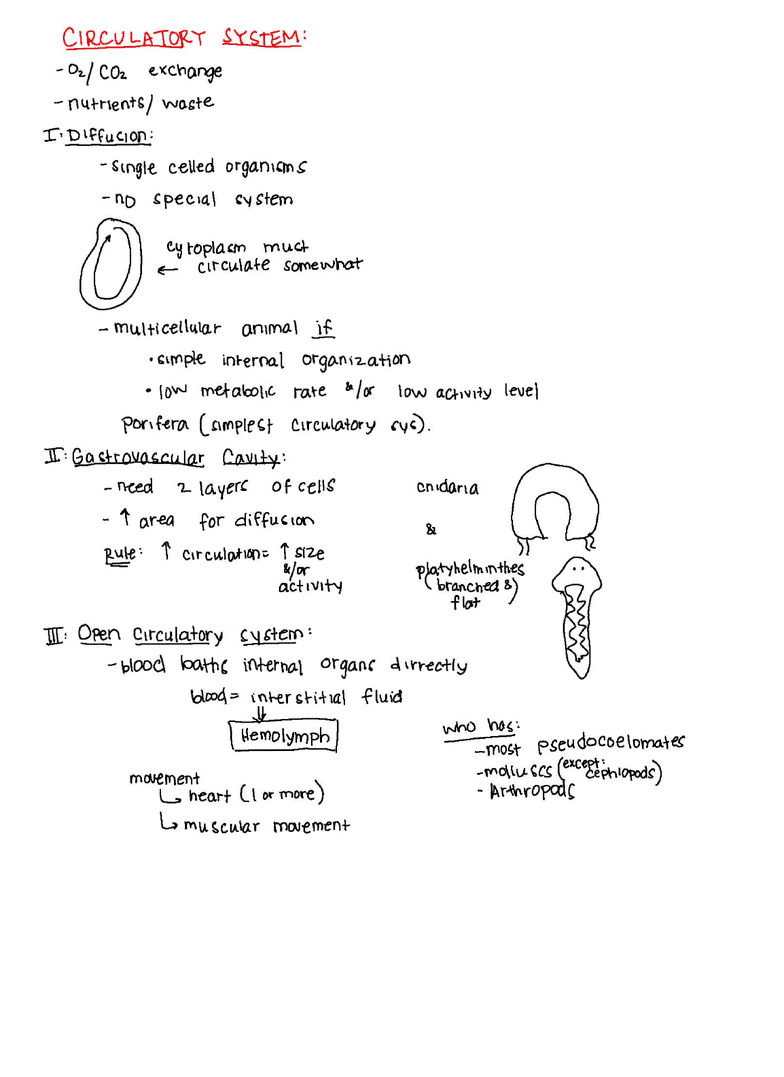 CIRCULATORY SYSTEM:
- O₂/CO₂ exchange
- nutrients/ waste
I: Diffusion:
- single celled organisms
- no special system
cytoplasm must
← circulate somewhat
- multicellular animal if
• simple internal organization
• low metabolic rate &/or low activity level
Porifera (simplest circulatory sys).
II: Gastrovascular Cavity:
- need 2 layers of cells
- ↑ area for diffusion
Rule: ↑ circulation= ↑ size
&/or
activity
cnidaria
&
platyhelminthes
(branched &)
flat
III: Open Circulatory system:
- blood baths internal organs dirrectly
blood = interstitial fluid
⇓
Hemolymph
movement
↳ heart (1 or more)
↳ muscular movement
who has:
- most pseudocoelomates
- molluscs (except: cephlopods)
- Arthropods